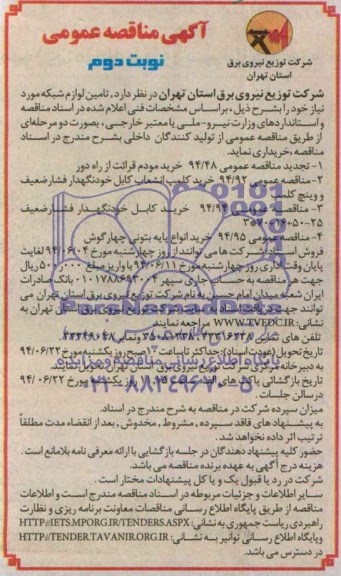 آگهی مناقصه عمومی
نوبت دوم
شرکت توزیع نیروی برق
استان تهران
شرکت توزیع نیروی برق استان تهران در نظر دارد، تامین لوازم شبکه مورد
نیاز خود را بشرح ذیل، براساس مشخصات فنی اعلام شده در اسناد مناقصه
و استانداردهای وزارت نیرو-ملی یا معتبر خارجی، بصورت دو مرحله‌ای
از طریق مناقصه عمومی از تولید کنندگان داخلی بشرح مندرج در اسناد
مناقصه، خریداری نماید.
۱- تجدید مناقصه عمومی ۹۴/۴۸ خرید مودم قرائت از راه دور
۲- مناقصه عمومی ۹۴/۹۲ خرید کلمپ انشعاب کابل خودنگهدار فشار ضعیف
و وینچ کلمپ
۳- مناقصه عمومی ۹۴/۹۴ خرید کابل خودنگهدار فشار ضعیف
۴- مناقصه عمومی ۹۴/۹۵ خرید انواع پایه بتونی چهارگوش
فروش اسناد: شرکت ها می توانند از روز چهارشنبه مورخ ۹۴/۰۶/۰۴ لغایت
پایان وقت اداری روز چهارشنبه مورخ ۹۴/۰۶/۱۱ با واریز مبلغ ۵۰۰٫۰۰۰ ریال
جهت هر مناقصه به حساب جاری سپهر بانک صادرات
ایران شعبه میدان امام حسین به نام شرکت توزیع نیروی برق استان تهران می
توانند جهت دریافت اسناد به شرکت توزیع نیروی برق تهران به
نشانی: WWW.TVEDC.IR مراجعه نمایند.
تلفن های تماس:
تاریخ تحویل (عودت اسناد): حداکثر تا ساعت ۱۲ صبح روز یکشنبه مورخ ۹۴/۰۶/۲۲
به دبیرخانه مرکزی شرکت توزیع نیروی برق استان تهران تحویل نمایند.
تاریخ بازگشائی پاکت های روز یکشنبه مورخ ۹۴/۰۶/۲۲
در سالن جلسات.
میزان سپرده شرکت در مناقصه به شرح مندرج در اسناد.
به پیشنهاد های فاقد سپرده، مشروط، مخدوش، بعد از انقضاء مدت مطلقاً
ترتیب اثر داده نخواهد شد.
حضور کلیه پیشنهاد دهندگان در جلسه بازگشایی با ارائه معرفی نامه بلامانع است.
هزینه درج آگهی به عهده برنده مناقصه می باشد.
شرکت در رد یا قبول یک و یا کل پیشنهادات مختار است.
سایر اطلاعات و جزئیات مربوطه در اسناد مناقصه مندرج است و اطلاعات
مناقصه از طریق پایگاه اطلاع رسانی مناقصات معاونت برنامه ریزی و نظارت
راهبردی ریاست جمهوری به نشانی: HTTP://IETS.MPORG.IR/TENDERS.ASPX
وپایگاه اطلاع رسانی توانیر به نشانی: HTTP://TENDER.TAVANIR.ORG.IR
در دسترس می باشد.
ParsNamadData
پایگاه اطلاع رسانی مناقصه و مزایده
۰۲۱-۸۸۳۴۹۶۷۰-۵